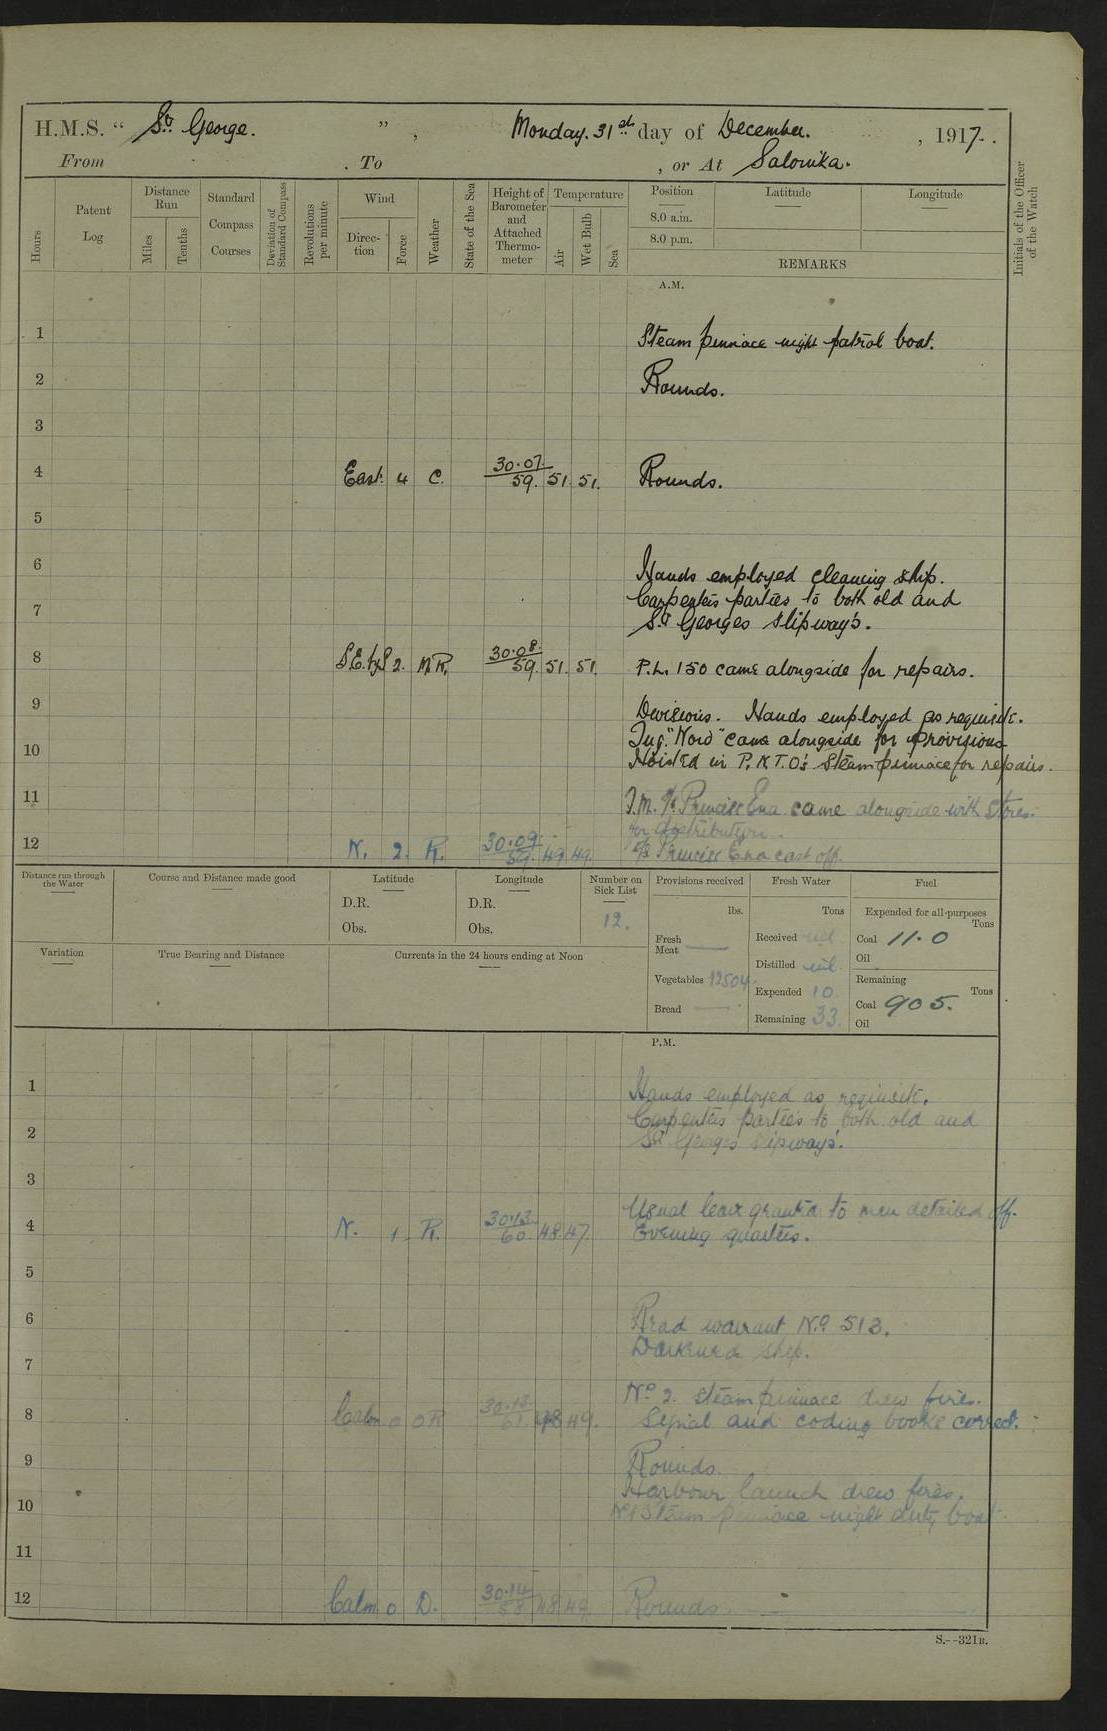 H.M.S. “ St. George. ” , Monday. 31st day of December. , 1917.
From . To , or At Salonika.
Hours
Patent Log
Distance Run
Miles
Tenths
Standard Compass Courses
Deviation of Standard Compass
Revolutions per minute
Wind
Direc-tion
Force
Weather
State of the Sea
Height of Barometer and Attached Thermo-meter
Temperature
Air
Wet Bulb
Sea
Position Latitude Longitude
8.0 a.m.
8.0 p.m.
REMARKS
Initials of the Officer of the Watch
A.M.
1 Steam pinnace night patrol boat.
2 Rounds.
3
4 East. 4 C. 30.07. 59. 51. 51. Rounds.
5
6 Hands employed cleaning ship.
7 Carpenters parties to both old and
St Georges slipway's.
8 S.E. by S 2. M.R. 30.08. 59. 51. 51. P.L. 150 came alongside for repairs.
9 Divisions. Hands employed as requisite.
Tug. "Nord" came alongside for provisions
10 Hoisted in P.K.T.O's Steam pinnace for repairs.
11 came alongside with stores.
for distribution.
12 N. 2. R. 30.09. 59. 49. 49. cast off.
Distance run through the Water
Course and Distance made good
Latitude
D.R.
Obs.
Longitude
D.R.
Obs.
Number on Sick List
12.
Provisions received
lbs.
Fresh Meat
Vegetables 12504
Bread
Fresh Water
Tons
Received nil
Distilled nil.
Expended 10
Remaining 33.
Fuel
Expended for all purposes
Tons
Coal 11.0
Oil
Remaining
Tons
Coal 905.
Oil
Variation
True Bearing and Distance
Currents in the 24 hours ending at Noon
P.M.
1 Hands employed as requisite.
Carpenters parties to both old and
2 St Georges slipways'.
3
Usual leave granted to men detailed off.
4 N. 1 R. 30.13 60 48. 47. Evening quarters.
5
6 Read warrant No. 513.
7 Darkened ship.
No 2. steam pinnace drew fires.
8 Calm 0 OR 61 48 49. Signal and coding books correct.
9 Rounds.
Harbour launch drew fires.
10 Steam pinnace night duty boat
11
12 Calm. 0 D. 30.14 58 48 49. Rounds.
S.--321B.